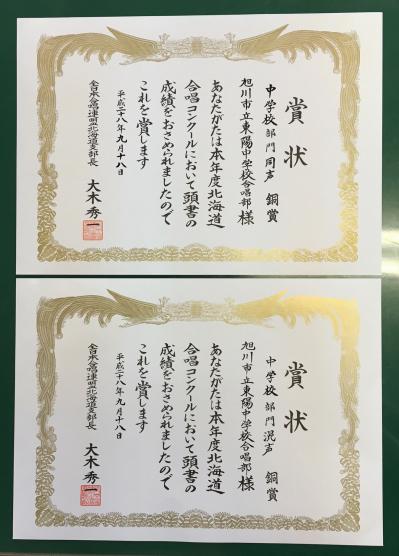 賞状
中学校部門同声 銅賞
旭川市立東陽中学校合唱部様
あなたがたは本年度北海道
合唱コンクールにおいて頭書の
成績をおさめられましたので
これを賞します
平成二十八年九月十八日
全日本合唱連盟北海道支部長
大木秀一
賞状
中学校部門混声 銅賞
旭川市立東陽中学校合唱部様
あなたがたは本年度北海道
合唱コンクールにおいて頭書の
成績をおさめられましたので
これを賞します
平成二十八年九月十八日
全日本合唱連盟北海道支部長
大木秀一